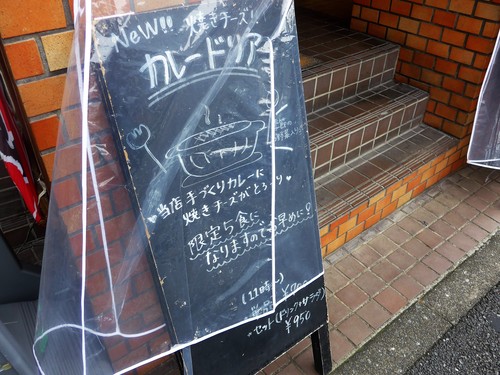 NEW!! 焼きチーズ
カレードリア
当店手づくりカレーに
焼きチーズがとろ〜り
限定5食に
なりますのでお早めに!
(11時〜)
セット(ドリンク+サラダ)
¥950